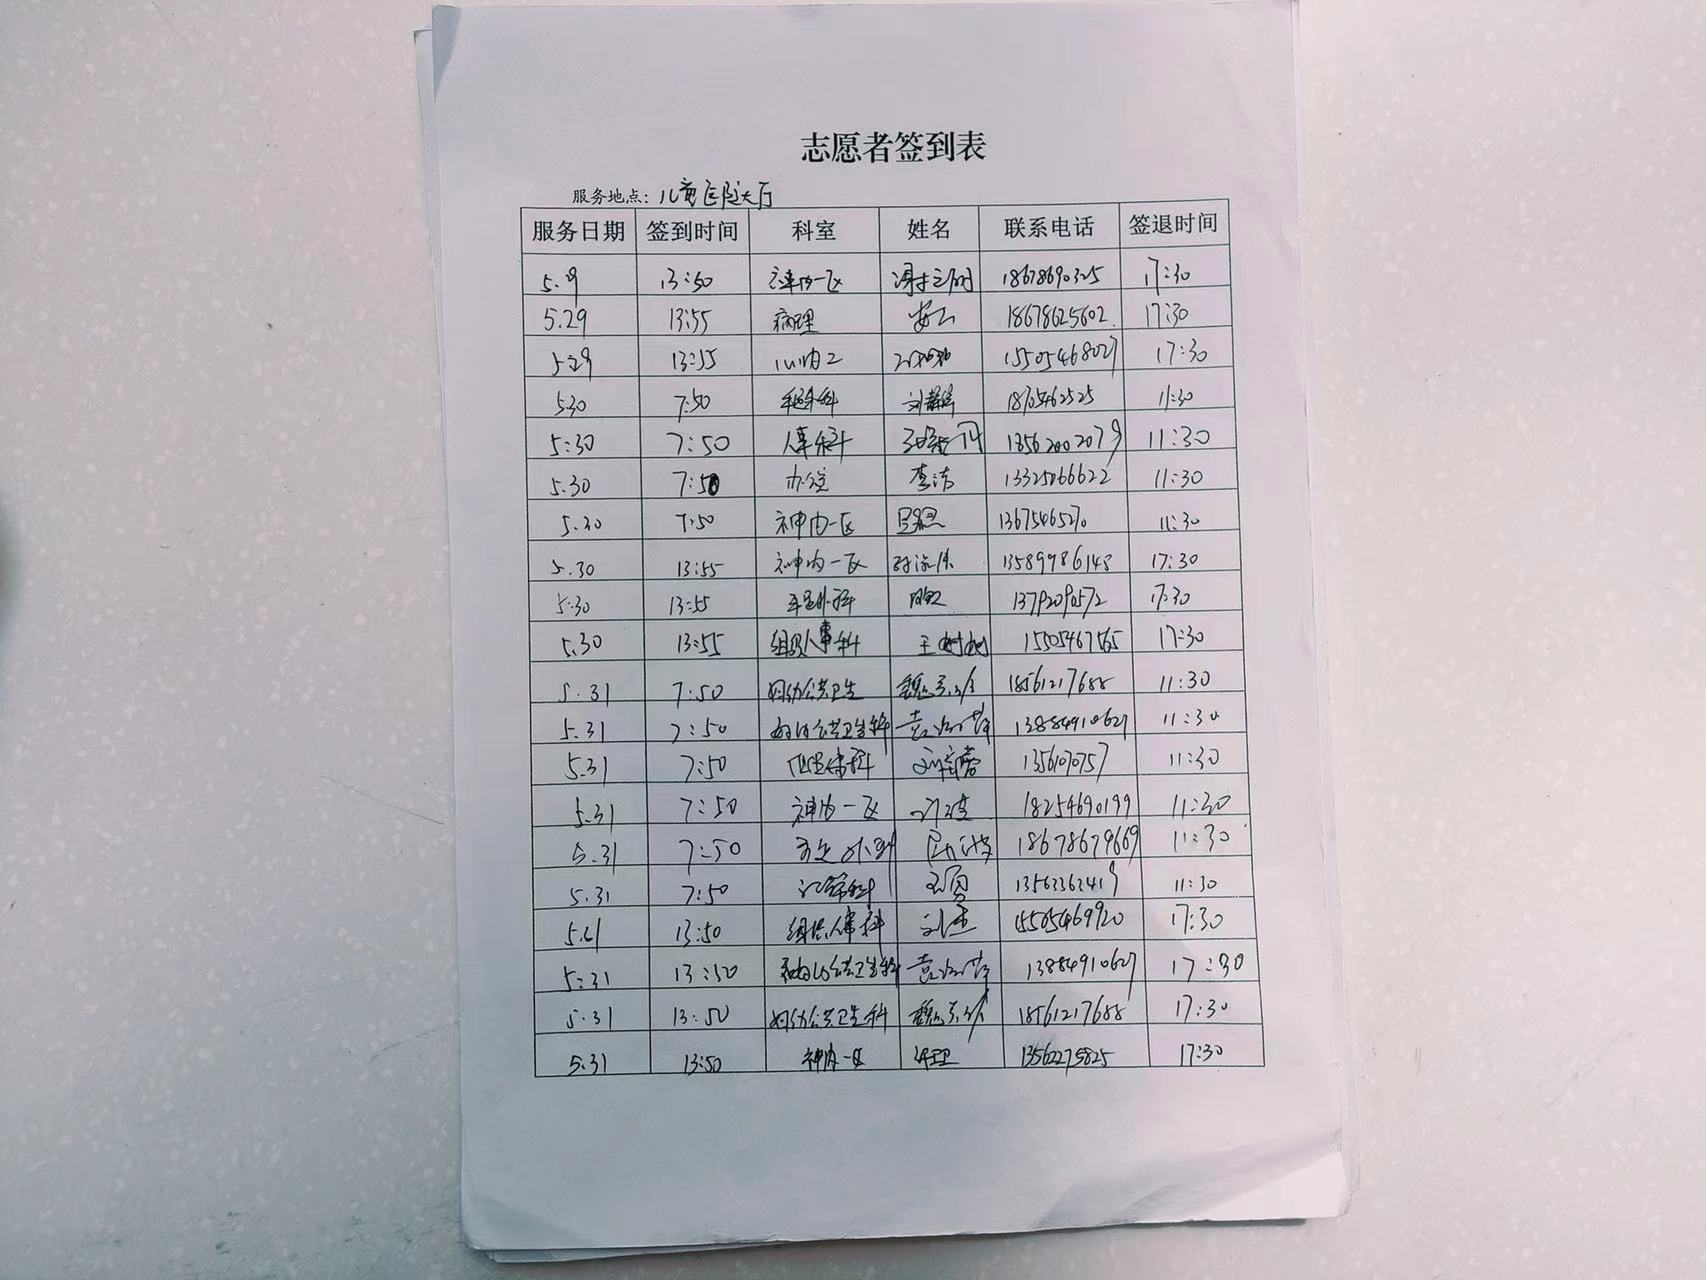 志愿者签到表
服务地点：儿童医院大厅
服务日期 签到时间 科室 姓名 联系电话 签退时间
5.9 13:50 神内一区 18678690325 17:30
5.29 13:55 病理 安 18678625602 17:30
5.29 13:55 心内二 15505468027 17:30
5.30 7:50 刘 18705462525 11:30
5:30 7:50 人事科 13562002079 11:30
5.30 7:50 办公室 李洁 13325066622 11:30
5.30 7:50 神内一区 13675465270 11:30
5.30 13:55 神内一区 13589986143 17:30
5:30 13:55 手足外科 13792090572 17:30
5.30 13:55 组织人事科 王 15505467565 17:30
5.31 7:50 妇幼公共卫生 魏 18561217688 11:30
5.31 7:50 妇幼公共卫生科 袁 13884910627 11:30
5.31 7:50 刘 11:30
5.31 7:50 神内一区 18254690199 11:30
5.31 7:50 18678679669 11:30
5.31 7:50 13563362419 11:30
13:50 组织人事科 刘 15505469920 17:30
5:31 13:50 妇幼公共卫生科 袁 13884910627 17:30
5.31 13:50 妇幼公共卫生科 魏 18561217688 17:30
5.31 13:50 神内一区 13562275825 17:30